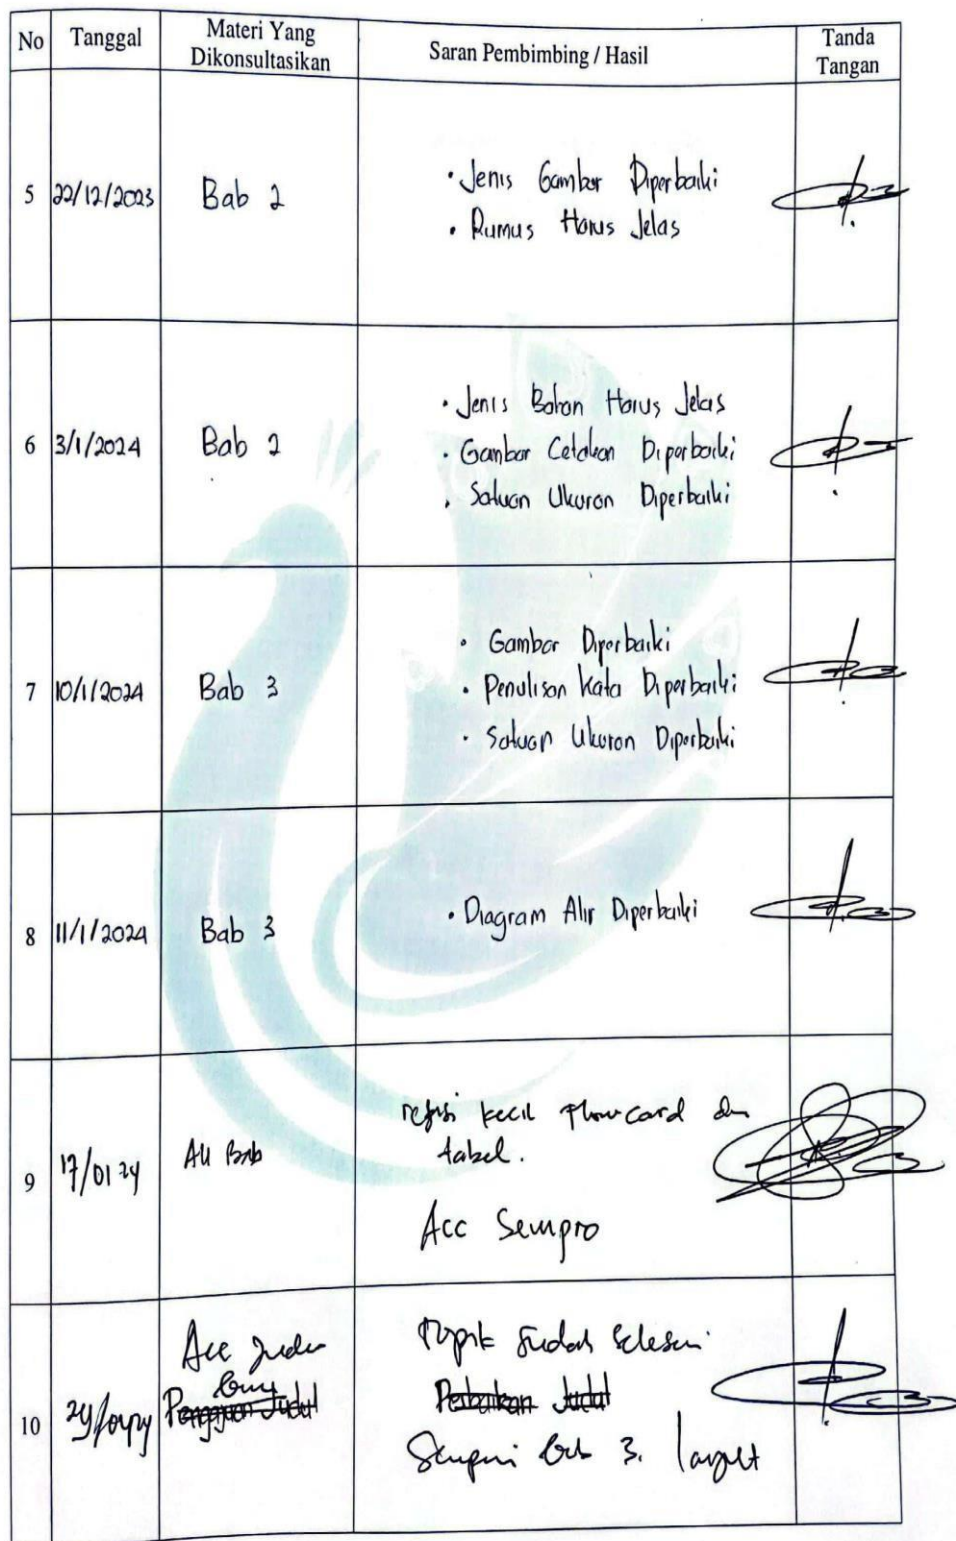 No Tanggal Materi Yang Dikonsultasikan Saran Pembimbing / Hasil Tanda Tangan
5 22/12/2023 Bab 2
• Jenis Gambar Diperbaiki
• Rumus Harus Jelas
6 3/1/2024 Bab 2
• Jenis Bahan Harus Jelas
• Gambar Cetakan Diperbaiki
• Satuan Ukuran Diperbaiki
7 10/1/2024 Bab 3
• Gambar Diperbaiki
• Penulisan Kata Diperbaiki
• Satuan Ukuran Diperbaiki
8 11/1/2024 Bab 3
• Diagram Alir Diperbaiki
9 17/01 24 All Bab
refisi kecil Flowcard dan
tabel.
Acc Sempro
10
Acc Judu
Pengajuan Judul
Topik sudah selesai
Perbaikan Judul
bab 3.